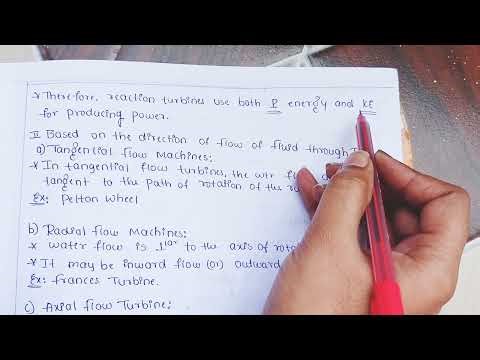 * Therefore, reaction turbines use both P energy and KE
for producing power.
II Based on the direction of flow of fluid through
a) Tangential flow Machines:
* In tangential flow turbines, the wtr
tangent to the path of rotation of the
Ex: Pelton wheel
b) Radial flow Machines:
* water flow is ⊥lar to the axis of
* It may be inward flow (or) outward
Ex: Frances Turbine.
c) Axial flow Turbine: